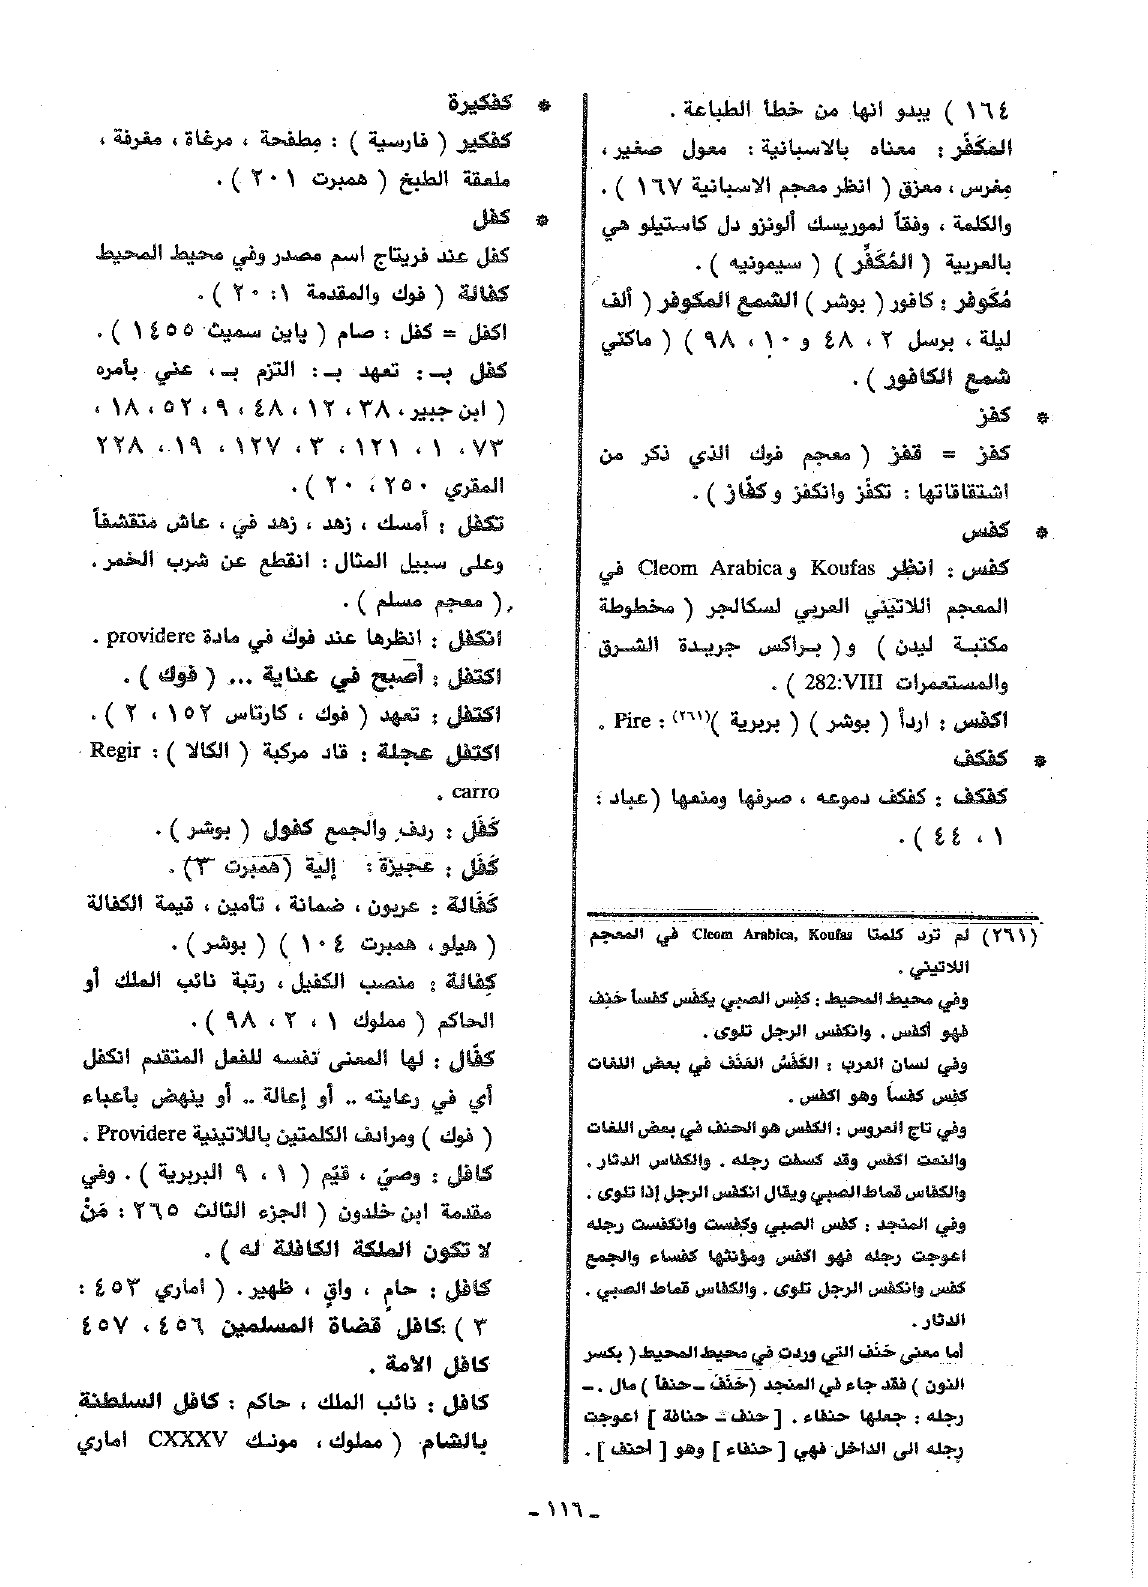 ١٦٤ ) يبدو انها من خطأ الطباعة .
المكَفَّر : معناه بالاسبانية : معول صغير ،
مِفرس ، معزق ( انظر معجم الاسبانية ١٦٧ ) .
والكلمة ، وفقاً لموريسك ألونزو دل كاستيلو هي
بالعربية ( المُكَفَّر ) ( سيمونيه ) .
مُكَوفر : كافور ( بوشر ) الشمع المكوفر ( ألف
ليلة ، برسل ٢ ، ٤٨ و ١٠ ، ٩٨ ) ( ماكني
شمع الكافور ) .
* كفز
كفز = قفز ( معجم فوك الذي ذكر من
اشتقاقاتها : تكفّز وانكفز وكفّاز ) .
* كفس
كفس : انظر Koufas و Cleom Arabica في
المعجم اللاتيني العربي لسكالجر ( مخطوطة
مكتبة ليدن ) و ( براكس جريدة الشرق
والمستعمرات 282:VIII ) .
اكفس : اردأ ( بوشر ) ( بربرية )(٢٦١) : Pire .
* كفكف
كفكف : كفكف دموعه ، صرفها ومنعها (عباد :
١ ، ٤٤ ) .
(٢٦١) لم ترد كلمتا Cleom Arabica, Koufas في المعجم
اللاتيني .
وفي محيط المحيط : كفِس الصبي يكفَس كفساً حَنِف
فهو أكفس . وانكفس الرجل تلوى .
وفي لسان العرب : الكَفَسُ الحَنَف في بعض اللغات
كفِس كفساً وهو اكفس .
وفي تاج العروس : الكفس هو الحنف في بعض اللغات
والنعت اكفس وقد كسفت رجله . والكفاس الدثار .
والكفاس قماط الصبي ويقال انكفس الرجل إذا تلوى .
وفي المنجد : كفس الصبي وكفست وانكفست رجله
اعوجت رجله فهو اكفس ومؤنثها كفساء والجمع
كفس وانكفس الرجل تلوى . والكفاس قماط الصبي .
الدثار .
أما معنى حَنَف التي وردت في محيط المحيط ( بكسر
النون ) فقد جاء في المنجد (حَنَفَ ــ حنفاً ) مال . ــ
رجله : جعلها حنفاء . [ حنف ــ حنافة ] اعوجت
رجله الى الداخل فهي [ حنفاء ] وهو [ أحنف ] .
* كفكيرة
كفكير ( فارسية ) : مِطفحة ، مرغاة ، مغرفة ،
ملعقة الطبخ ( همبرت ٢٠١ ) .
* كفل
كفل عند فريتاج اسم مصدر وفي محيط المحيط
كفالة ( فوك والمقدمة ١: ٢٠ ) .
اكفل = كفل : صام ( پاين سميث ١٤٥٥ ) .
كفل بـ : تعهد بـ : التزم بـ ، عني بأمره
( ابن جبير ، ٣٨ ، ١٢ ، ٤٨ ، ٩ ، ٥٢ ، ١٨ ،
٧٣ ، ١ ، ١٢١ ، ٣ ، ١٢٧ ، ١٩ ، ٢٢٨
المقري ٢٥٠ ، ٢٠ ) .
تكفل : أمسك ، زهد ، زهد في ، عاش متقشفاً
وعلى سبيل المثال : انقطع عن شرب الخمر .
( معجم مسلم ) .
انكفل : انظرها عند فوك في مادة providere .
اكتفل : أصبح في عناية ... ( فوك ) .
اكتفل : تعهد ( فوك ، كارتاس ١٥٢ ، ٢ ) .
اكتفل عجلة : قاد مركبة ( الكالا ) : Regir
carro .
كَفَل : ردف والجمع كفول ( بوشر ) .
كَفَل : عجيزة : إلية (همبرت ٣) .
كَفَالة : عربون ، ضمانة ، تأمين ، قيمة الكفالة
( هيلو ، همبرت ١٠٤ ) ( بوشر ) .
كِفالة : منصب الكفيل ، رتبة نائب الملك أو
الحاكم ( مملوك ١ ، ٢ ، ٩٨ ) .
كفّال : لها المعنى نفسه للفعل المتقدم انكفل
أي في رعايته .. أو إعالة .. أو ينهض بأعباء
( فوك ) ومرادف الكلمتين باللاتينية Providere .
كافل : وصيّ ، قيّم ( ١ ، ٩ البربرية ) . وفي
مقدمة ابن خلدون ( الجزء الثالث ٢٦٥ : مَنْ
لا تكون الملكة الكافلة له ) .
كافل : حامٍ ، واقٍ ، ظهير . ( اماري ٤٥٣ :
٣ ) كافل قضاة المسلمين ٤٥٦ ، ٤٥٧
كافل الامة .
كافل : نائب الملك ، حاكم : كافل السلطنة
بالشام ( مملوك ، مونك CXXXV اماري
ـ ١١٦ ـ